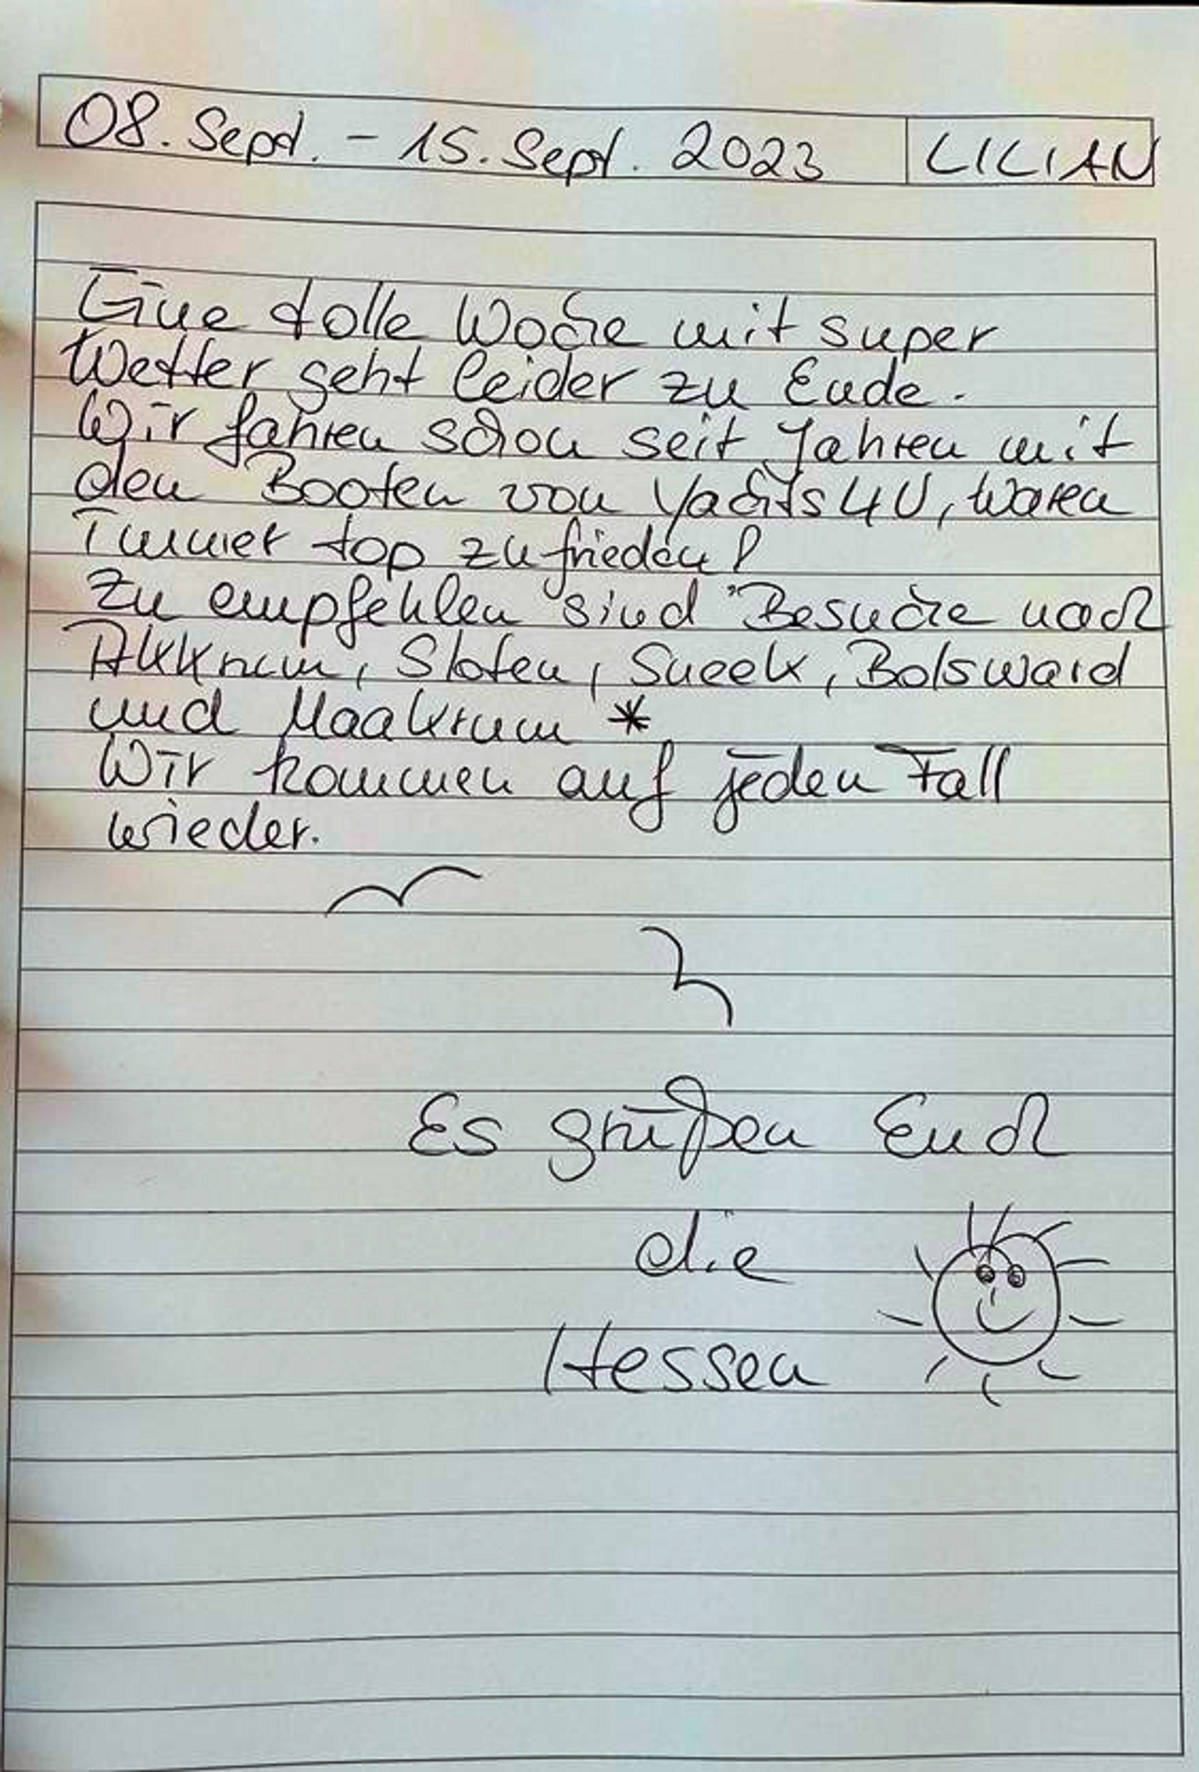 08. Sept. - 15. Sept. 2023 LILIAN
Eine tolle Woche mit super
Wetter geht leider zu Ende.
Wir fahren schon seit Jahren mit
den Booten von Yachts4U, waren
Immer top zufrieden!
Zu empfehlen sind Besuche nach
Akkrum, Sloten, Sneek, Bolsward
und Maakrum *
Wir kommen auf jeden Fall
wieder.
Es grüßen Euch
die
Hessen